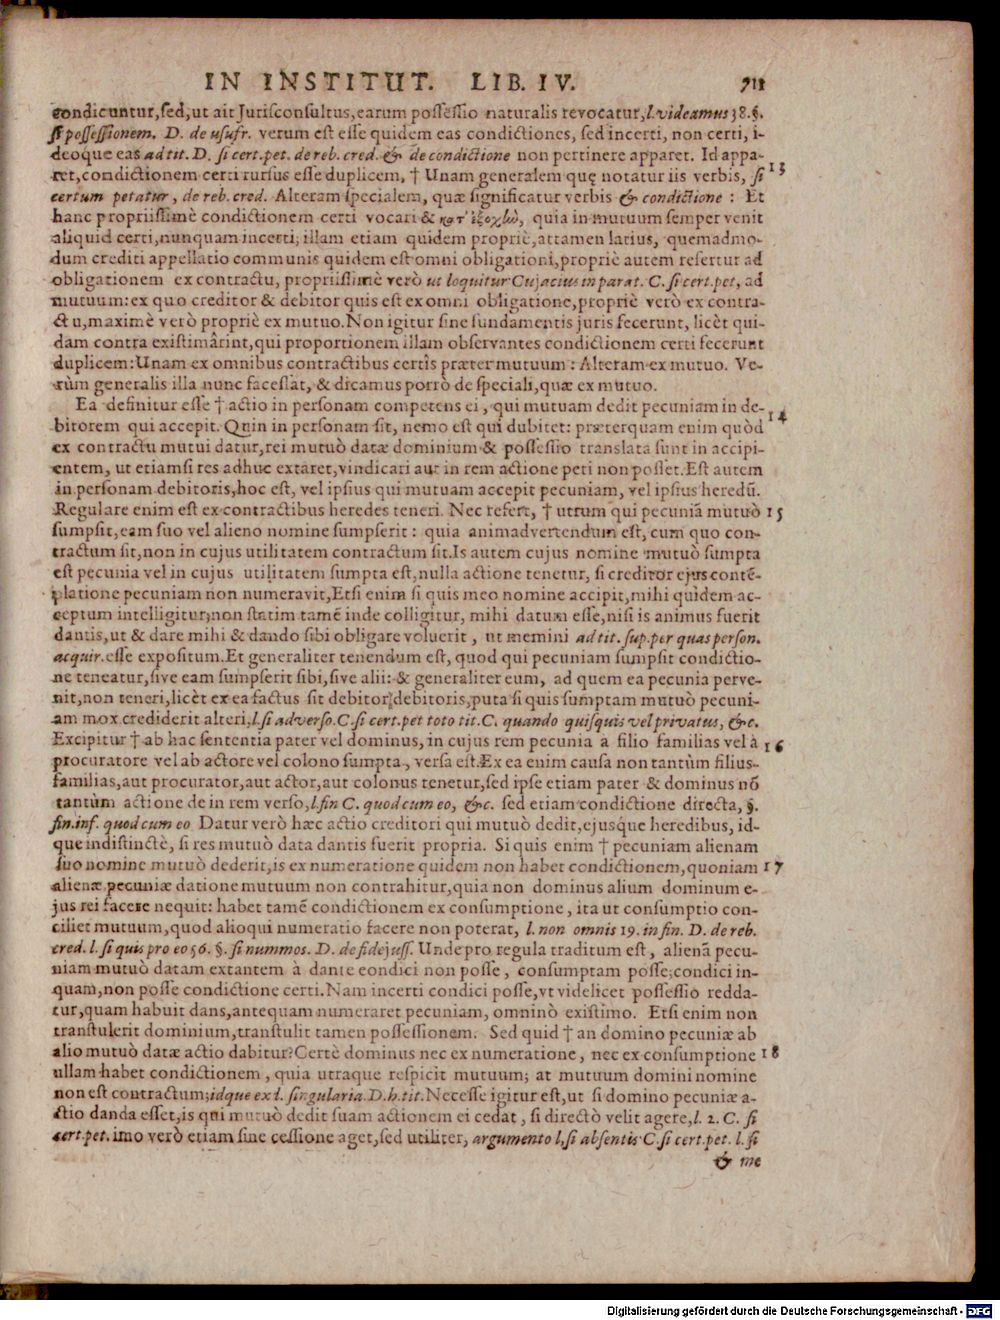 IN INSTITUT. LIB. IV. 711
condicuntur, sed, ut ait Jurisconsultus, earum possessio naturalis revocatur, l. videamus 38. §.
si possessionem. D. de usufr. verum est esse quidem eas condictiones, sed incerti, non certi, i-
deoque eas ad tit. D. si cert. pet. de reb. cred. & de condictione non pertinere apparet. Id appa-
ret, condictionem certi rursus esse duplicem, † Unam generalem quę notatur iis verbis, si 13
certum petatur, de reb. cred. Alteram specialem, quæ significatur verbis & condictione : Et
hanc propriissimè condictionem certi vocari & κατ' ἐξοχὴν, quia in mutuum semper venit
aliquid certi, nunquam incerti; illam etiam quidem propriè, attamen latius, quemadmo-
dum crediti appellatio communis quidem est omni obligationi, propriè autem refertur ad
obligationem ex contractu, propriissimè verò ut loquitur Cujacius in parat. C. si cert. pet, ad
mutuum: ex quo creditor & debitor quis est ex omni obligatione, propriè verò ex contra-
ctu, maximè verò propriè ex mutuo. Non igitur sine fundamentis juris fecerunt, licèt qui-
dam contra existimârint, qui proportionem illam observantes condictionem certi fecerunt
duplicem: Unam ex omnibus contractibus certis præter mutuum : Alteram ex mutuo. Ve-
rùm generalis illa nunc facessat, & dicamus porrò de speciali, quæ ex mutuo.
Ea definitur esse † actio in personam competens ei, qui mutuam dedit pecuniam in de- 14
bitorem qui accepit. Quin in personam sit, nemo est qui dubitet: præterquam enim quòd
ex contractu mutui datur, rei mutuò datæ dominium & possessio translata sunt in accipi-
entem, ut etiamsi res adhuc extaret, vindicari aut in rem actione peti non posset. Est autem
in personam debitoris, hoc est, vel ipsius qui mutuam accepit pecuniam, vel ipsius heredū.
Regulare enim est ex contractibus heredes teneri. Nec refert, † utrum qui pecuniā mutuò 15
sumpsit, eam suo vel alieno nomine sumpserit : quia animadvertendum est, cum quo con-
tractum sit, non in cujus utilitatem contractum sit. Is autem cujus nomine mutuò sumpta
est pecunia vel in cujus utilitatem sumpta est, nulla actione tenetur, si creditor ejus contē-
platione pecuniam non numeravit, Etsi enim si quis meo nomine accipit, mihi quidem ac-
ceptum intelligitur, non statim tamē inde colligitur, mihi datum esse, nisi is animus fuerit
dantis, ut & dare mihi & dando sibi obligare voluerit, ut memini ad tit. sup. per quas person.
acquir. esse expositum. Et generaliter tenendum est, quod qui pecuniam sumpsit condictio-
ne teneatur, sive eam sumpserit sibi, sive alii: & generaliter eum, ad quem ea pecunia perve-
nit, non teneri, licèt ex ea factus sit debitor debitoris, puta si quis sumptam mutuò pecuni-
am mox crediderit alteri, l. si adverso. C. si cert. pet toto tit. C. quando quisquis vel privatus, &c.
Excipitur † ab hac sententia pater vel dominus, in cujus rem pecunia a filio familias vel à 16
procuratore vel ab actore vel colono sumpta, versa est. Ex ea enim causa non tantùm filius-
familias, aut procurator, aut actor, aut colonus tenetur, sed ipse etiam pater & dominus nō
tantùm actione de in rem verso, l. fin C. quod cum eo, &c. sed etiam condictione directa, §.
fin. inf. quod cum eo Datur verò hæc actio creditori qui mutuò dedit, ejusque heredibus, id-
que indistinctè, si res mutuò data dantis fuerit propria. Si quis enim † pecuniam alienam
suo nomine mutuò dederit, is ex numeratione quidem non habet condictionem, quoniam 17
alienæ pecuniæ datione mutuum non contrahitur, quia non dominus alium dominum e-
jus rei facere nequit: habet tamē condictionem ex consumptione, ita ut consumptio con-
ciliet mutuum, quod alioqui numeratio facere non poterat, l. non omnis 19. in fin. D. de reb.
cred. l. si quis pro eo 56. §. si nummos. D. de fidejuss. Unde pro regula traditum est, alienā pecu-
niam mutuò datam extantem à dante condici non posse, consumptam posse; condici in-
quam, non posse condictione certi. Nam incerti condici posse, vt videlicet possessio redda-
tur, quam habuit dans, antequam numeraret pecuniam, omninò existimo. Etsi enim non
transtulerit dominium, transtulit tamen possessionem. Sed quid † an domino pecuniæ ab
alio mutuò datæ actio dabitur? Certè dominus nec ex numeratione, nec ex consumptione 18
ullam habet condictionem, quia utraque respicit mutuum; at mutuum domini nomine
non est contractum; idque ex l. singularia. D. h. tit. Necesse igitur est, ut si domino pecuniæ a-
ctio danda esset, is qui mutuò dedit suam actionem ei cedat, si directò velit agere, l. 2. C. si
cert. pet. imo verò etiam sine cessione aget, sed utiliter, argumento l. si absentis C. si cert. pet. l. si
& me
Digitalisierung gefördert durch die Deutsche Forschungsgemeinschaft - DFG